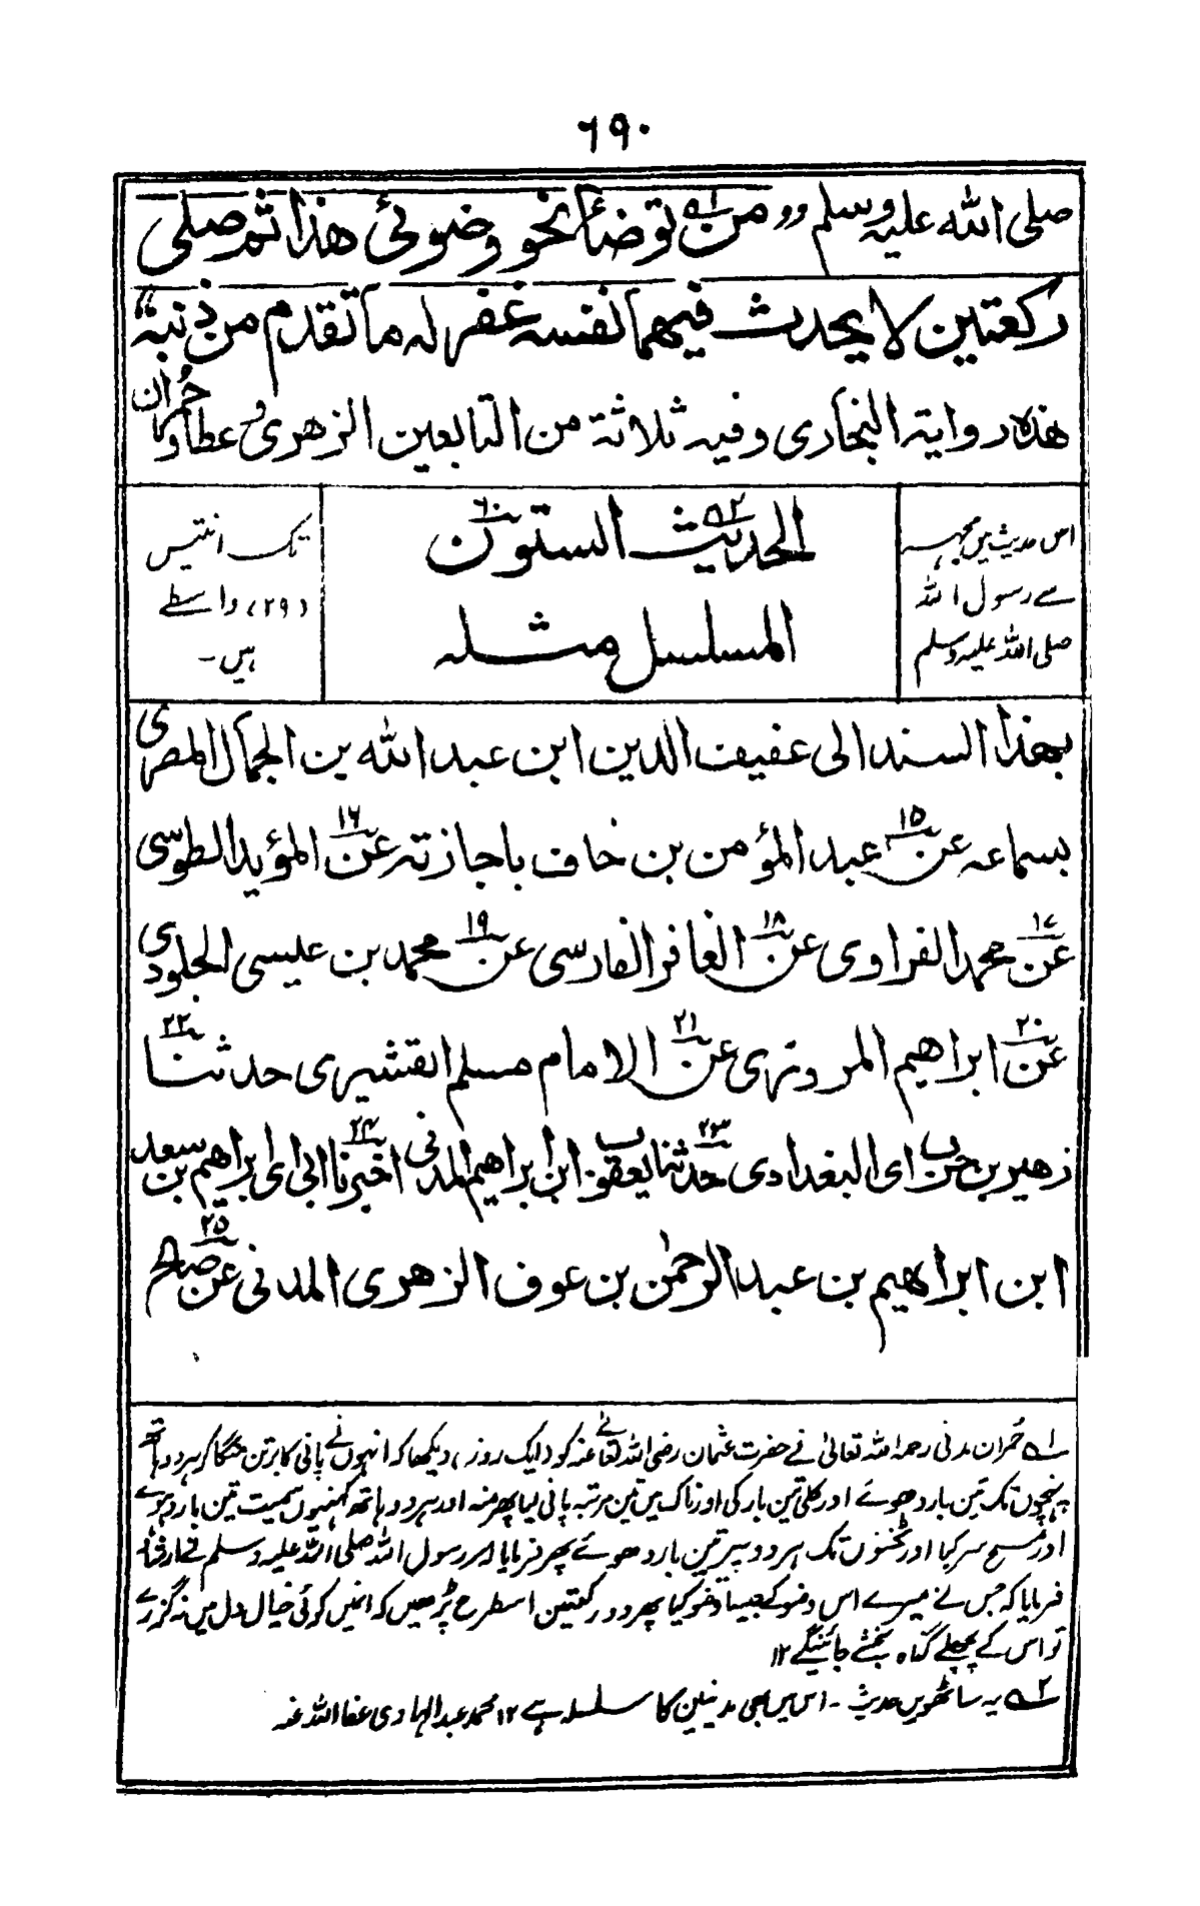 ٦٩٠
صلى الله عليه وسلم ,, من ١ـه توضأ نحو وضوئي هذا ثم صلى
ركعتين لا يحدث فيهما نفسه غفر له ما تقدم من ذنبه"
هذه رواية البخاري وفيه ثلاثة من التابعين الزهري و عطاء و حُمران
اس حدیث میں مجھ سے
سے رسول اللہ
صلی اللہ علیہ وسلم
الحديث ٢ـه الستون ٦٠
المسلسل مثله
تک انتیس
(۲۹) واسطے
ہیں۔
بهذا السند الى عفيف الدين ابن عبد الله بن الجمال المصري
بسماعه عن ١٥ عبد المؤمن بن خلف باجازته عن ١٦ المؤيد الطوسي
عن ١٧ محمد الفراوي عن ١٨ الغافر الفارسي عن ١٩ محمد بن عيسى الجلودي
عن ٢٠ ابراهيم المروزي عن ٢١ الامام مسلم القشيري حدثنا ٢٢
زهير بن حرب اى البغدادى حدثنا ٢٣ يعقوب ابن ابراهيم المدنى اخبرنا ٢٤ ابى اى ابراهيم بن سعد
ابن ابراهيم بن عبد الرحمن بن عوف الزهري المدني عن ٢٥ صالح
۱ـه حُمران مدنی رحمہ اللہ تعالیٰ نے حضرت عثمان رضی اللہ تعالےٰ عنہ کو (ایک روز) دیکھا کہ انہوں نے پانی کا برتن منگا کر ہر دو ہاتھ
پہنچوں تک تین بار دھوئے اور کلی تین بار کی اور ناک میں تین مرتبہ پانی لیا پھر منہ اور ہر دو ہاتھ کہنیوں سمیت تین بار دھوئے
اور مسح سر کیا اور ٹخنوں تک ہر دو پیر تین بار دھوئے پھر فرمایا اور رسول اللہ صلی اللہ علیہ وسلم نے ارشاد
فرمایا کہ جس نے میرے اس وضو کے جیسا وضو کیا پھر دو رکعتیں اسطرح پڑھیں کہ انمیں کوئی خیال دل میں نہ گزرے
تو اس کے پچھلے گناہ بخشے جائینگے ۱۲
۲ـه یہ ساٹھویں حدیث ۔ اس میں بھی مدنیین کا سلسلہ ہے ۱۲ محمد عبد الہادی عفا اللہ عنہ